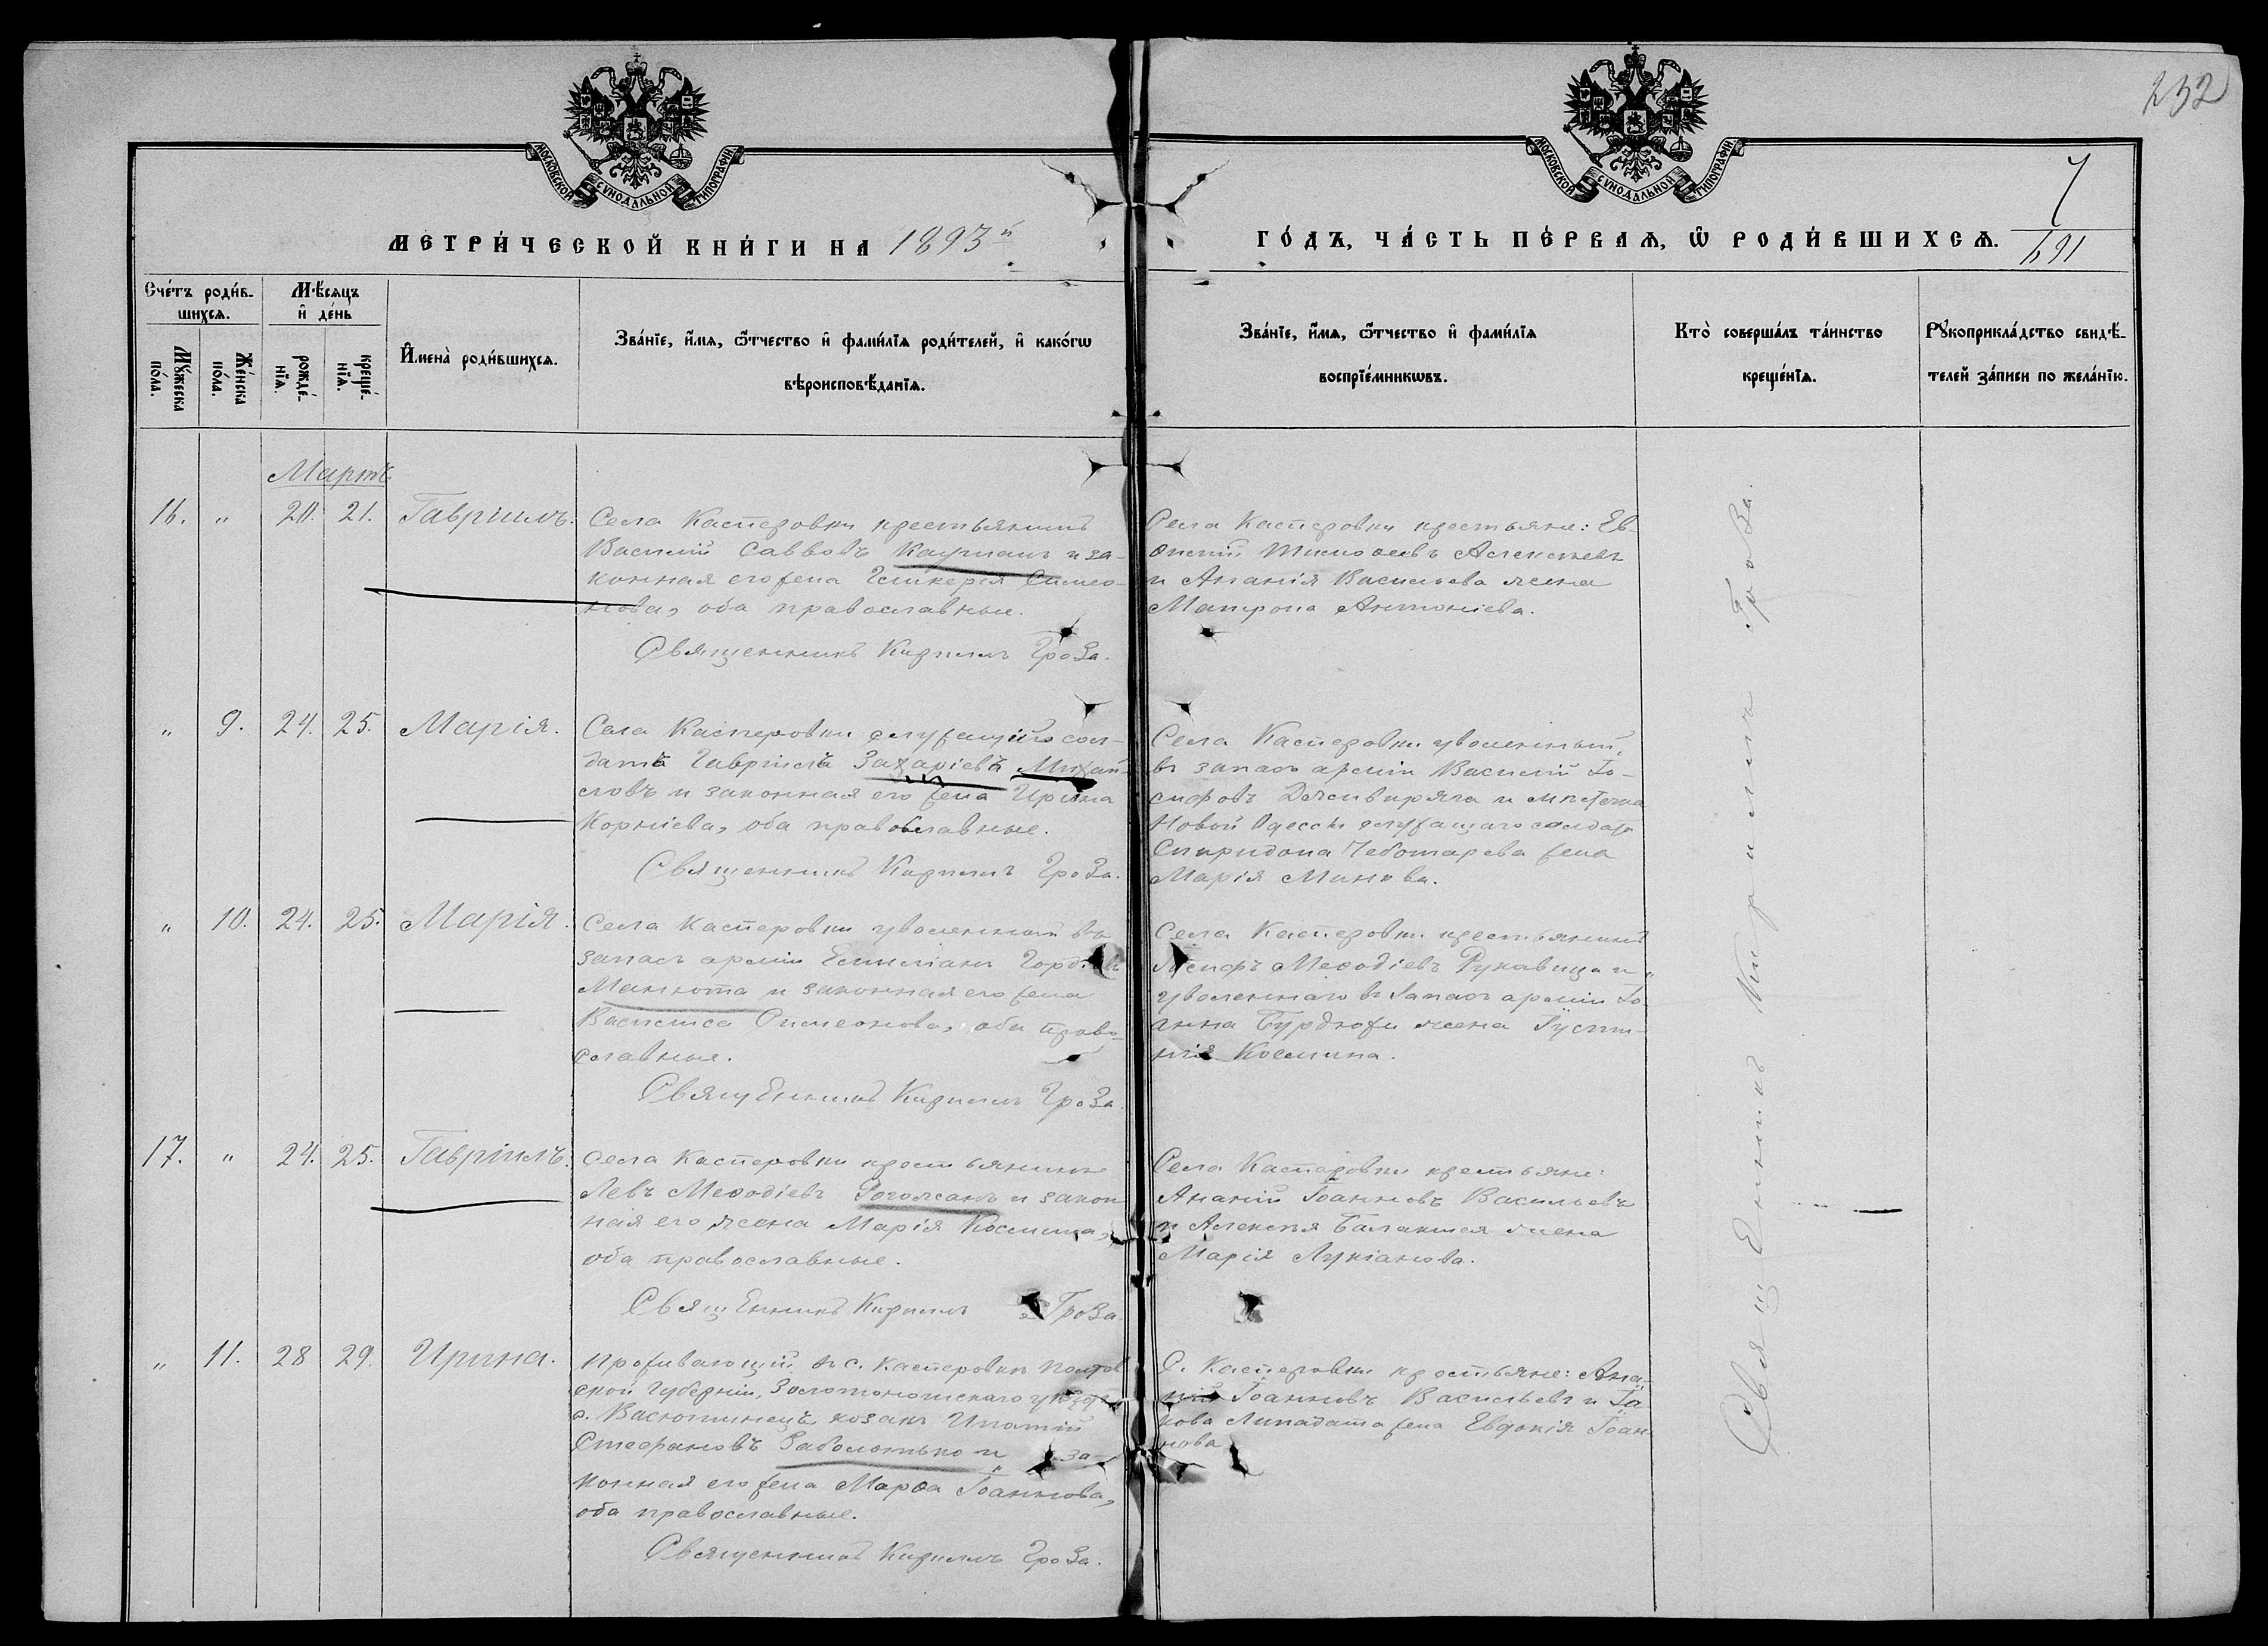 232
МОСКОВСКОЙ СѴНОДАЛЬНОЙ ТИПОГРАФІИ
МОСКОВСКОЙ СѴНОДАЛЬНОЙ ТИПОГРАФІИ
7
691
МЕТРИ́ЧЕСКОЙ КНИ́ГИ НА 1893й
ГО́ДЪ, ЧА́СТЬ ПЕ́РВАѦ, Ѡ҆ РОДИ́ВШИХСѦ.
Сче́тъ роди́в-
шихсѧ.
Мѣ́сѧцъ
и҆ де́нь
Мꙋ́жеска
по́ла.
Же́нска
по́ла.
рожде́-
нїѧ.
креще́-
нїѧ.
И҆мена̀ роди́вшихсѧ.
Зва́нїе, и҆́мѧ, ѻ҆́тчество и҆ фами́лїѧ роди́телей, и҆ како́гѡ
вѣроисповѣ́данїѧ.
Зва́нїе, и҆́мѧ, ѻ҆́тчество и҆ фами́лїѧ
воспрїе́мникѡвъ.
Кто̀ соверша́лъ та́инство
креще́нїѧ.
Рꙋкоприкла́дство свидѣ́-
телей за́писи по жела́нїю.
Мартъ
16. " 20. 21. Гавріилъ.
Села Касперовки крестьянинъ
Василій Савовъ и за-
конная его жена Гликерія Симео-
нова, оба православные.
Священникъ Кириллъ Гроза.
Села Касперовки крестьяне: Ев
Алексѣевъ
и Ананія Васильева жена
Матрона Антоніева.
" 9. 24. 25. Марія.
Села Касперовки служащій сол-
датъ Гавріилъ Захаріевъ Михай-
ловъ и законная его жена Ирина
Корніева, оба православные.
Священникъ Кириллъ Гроза.
Села Касперовки уволенный
въ запасъ арміи Василій Іо-
сифовъ и мѣстечка
Новой Одессы служащаго солдата
Спиридона Чеботарева жена
Марія Минова.
" 10. 24. 25. Марія.
Села Касперовки уволенный въ
запасъ арміи Емиліанъ
Манкота и законная его жена
Василиса Симеонова, оба право-
славные.
Священникъ Кириллъ Гроза
Села Касперовки крестьянинъ
Іосифъ Меѳодіевъ Рукавица и
уволеннаго въ запасъ арміи Іо-
анна жена Іусти-
нія Космина.
17. " 24. 25. Гавріилъ.
Села Касперовки крестьянинъ
Левъ Меѳодіевъ Рогожанъ и закон
ная его жена Марія Космина,
оба православные.
Священникъ Кириллъ Гроза
Села Касперовки крестьяне:
Ананій Іоанновъ Васильевъ
и Алексѣя жена
Марія Лукіанова.
" 11. 28 29. Ирина.
Проживающій въ с. Касперовкѣ Полтав
ской губерніи, Золотоношскаго уѣзда
с. Васютинецъ козакъ Ипатій
Стефановъ Заболотько и за-
конная его жена Марѳа Іоаннова,
оба православные.
Священникъ Кириллъ Гроза.
С. Касперовки крестьяне: Ана-
ній Іоанновъ Васильевъ и Іа
кова жена Евдокія Іоан
нова
Священникъ Кириллъ Гроза.